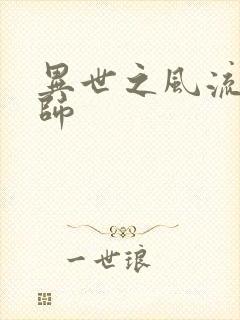 異世之風流
師
一世琅